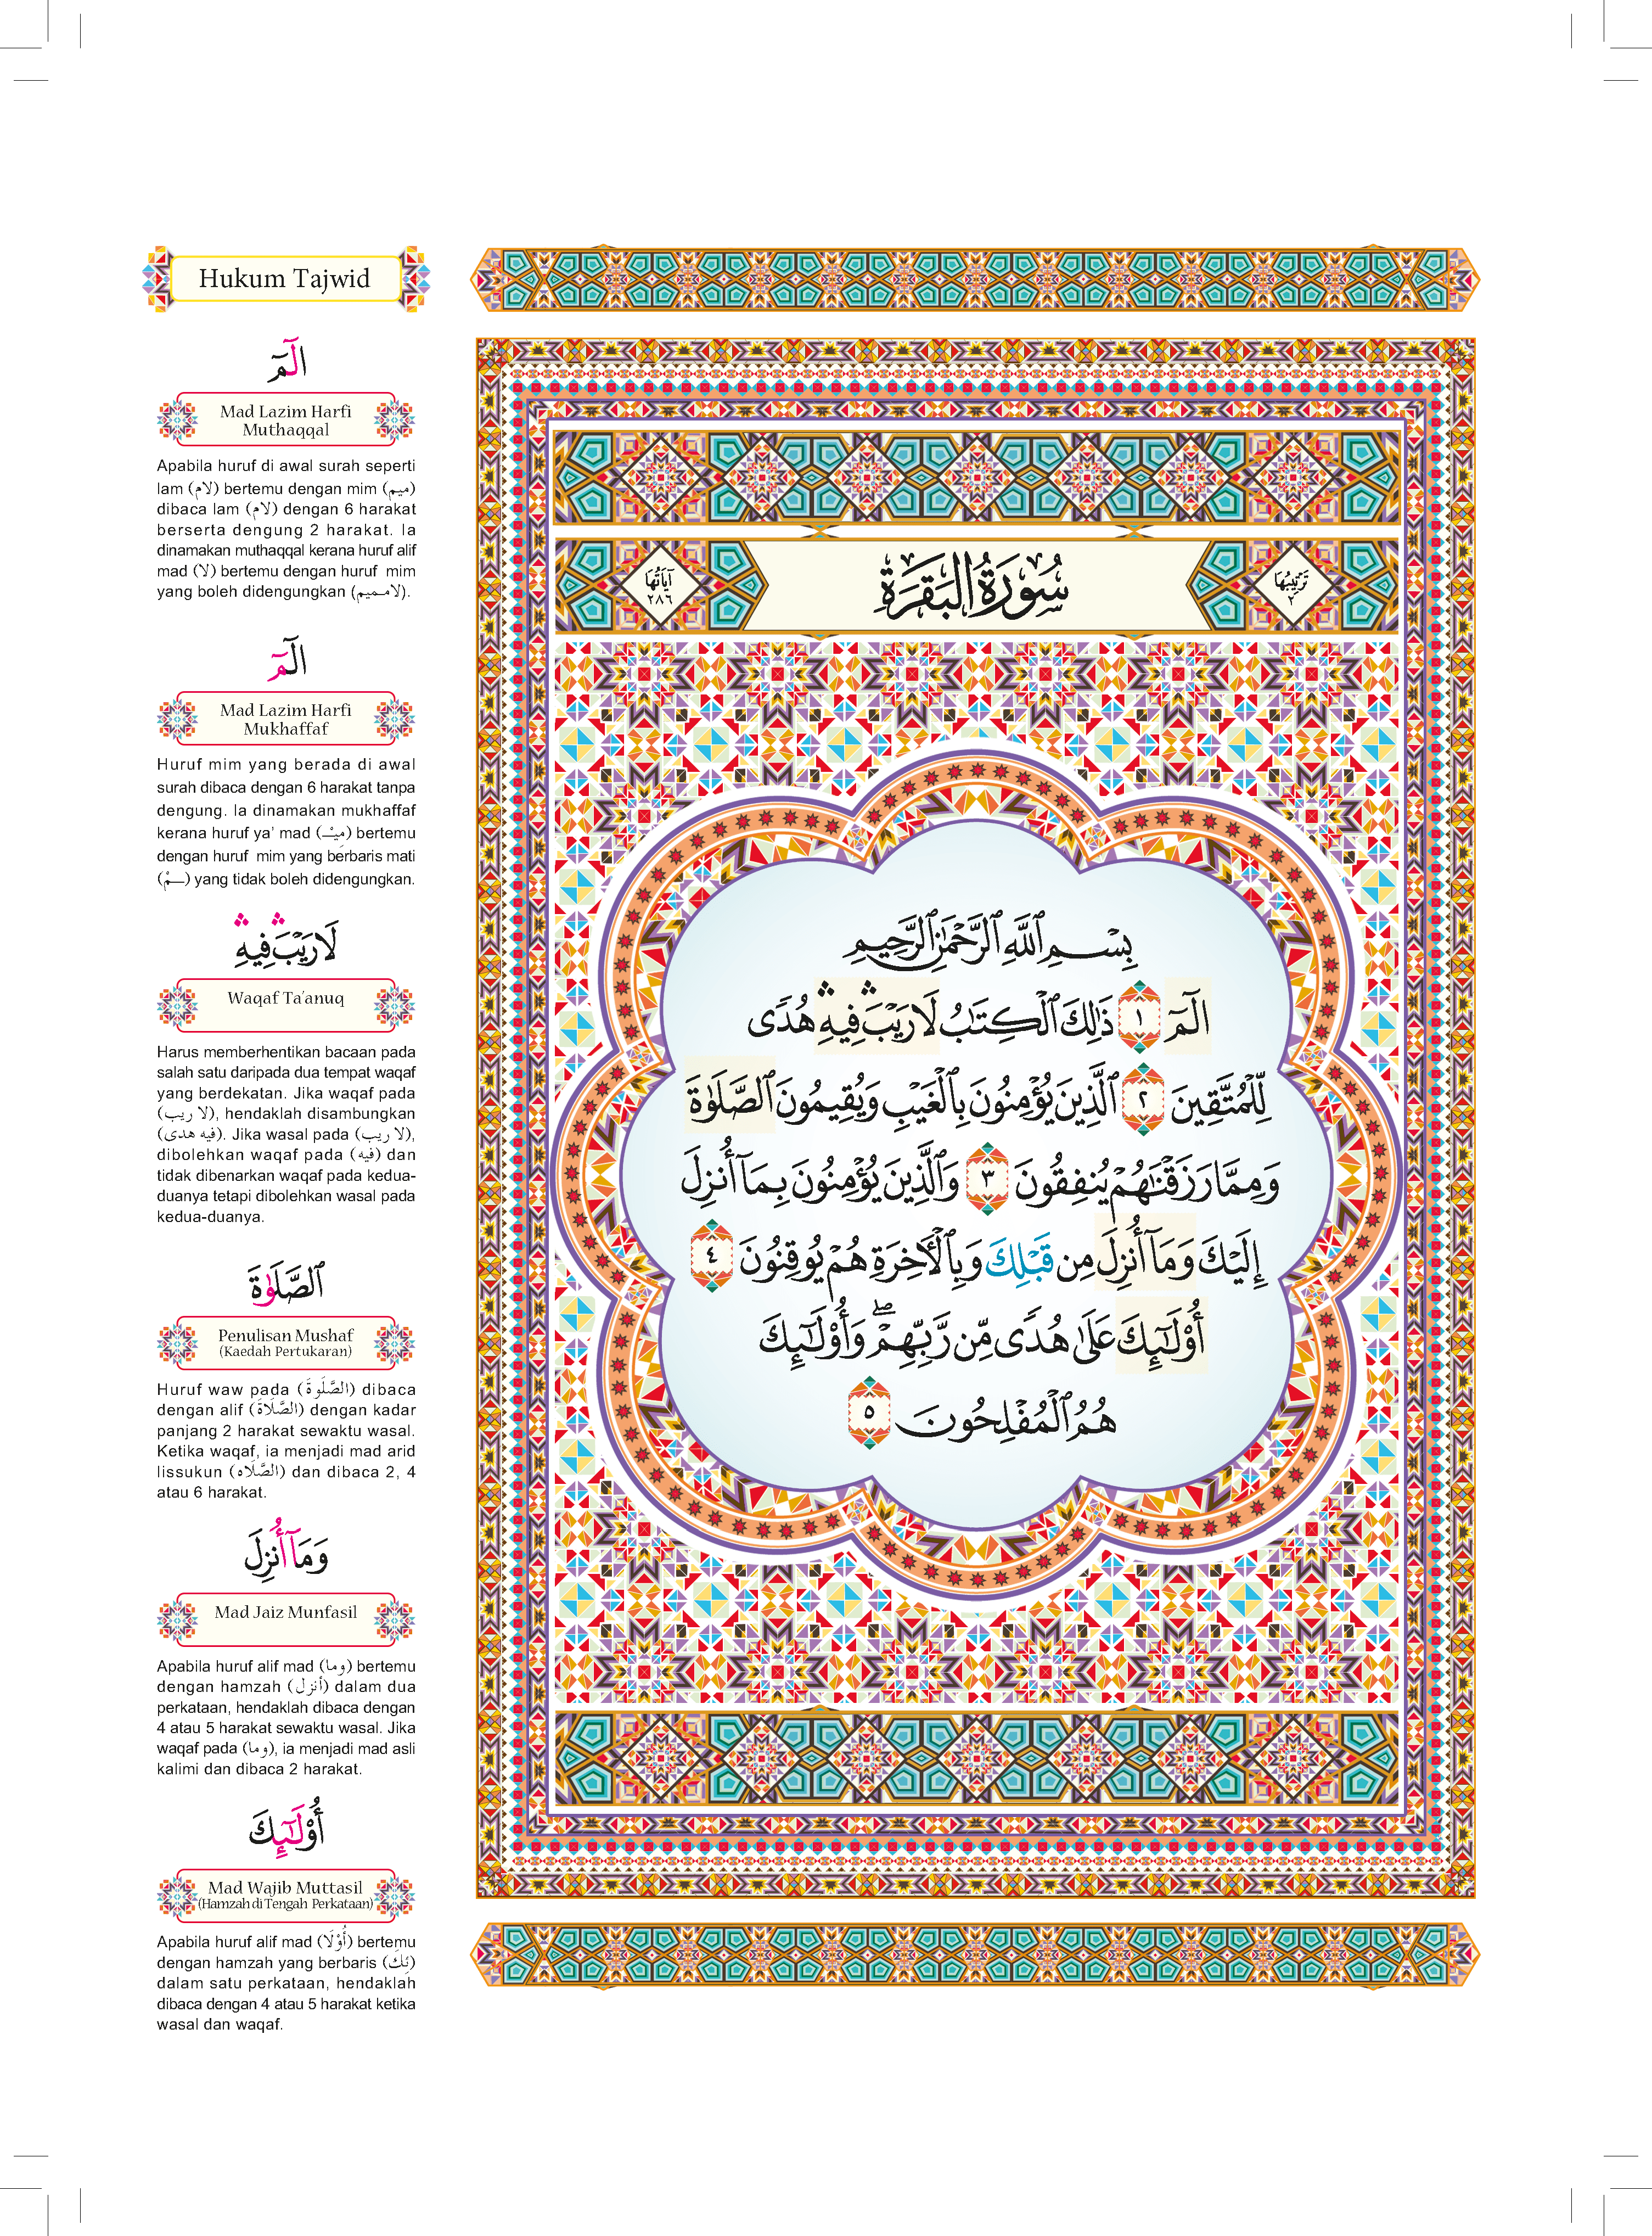 Hukum Tajwid
الٓمٓ
Mad Lazim Harfi
Muthaqqal
Apabila huruf di awal surah seperti
lam (لام) bertemu dengan mim (ميم)
dibaca lam (لام) dengan 6 harakat
berserta dengung 2 harakat. Ia
dinamakan muthaqqal kerana huruf alif
mad (لا) bertemu dengan huruf mim
yang boleh didengungkan (لامـميم).
الٓمٓ
Mad Lazim Harfi
Mukhaffaf
Huruf mim yang berada di awal
surah dibaca dengan 6 harakat tanpa
dengung. Ia dinamakan mukhaffaf
kerana huruf ya’ mad (مِيْـ) bertemu
dengan huruf mim yang berbaris mati
(ـمْ) yang tidak boleh didengungkan.
لَا رَيْبَ ۛ فِيهِ ۛ
Waqaf Ta’anuq
Harus memberhentikan bacaan pada
salah satu daripada dua tempat waqaf
yang berdekatan. Jika waqaf pada
(لا ريب), hendaklah disambungkan
(فيه هدى). Jika wasal pada (لا ريب),
dibolehkan waqaf pada (فيه) dan
tidak dibenarkan waqaf pada kedua-
duanya tetapi dibolehkan wasal pada
kedua-duanya.
ٱلصَّلَوٰةَ
Penulisan Mushaf
(Kaedah Pertukaran)
Huruf waw pada (الصَّلَوةَ) dibaca
dengan alif (الصَّلَاةَ) dengan kadar
panjang 2 harakat sewaktu wasal.
Ketika waqaf, ia menjadi mad arid
lissukun (الصَّلَاه) dan dibaca 2, 4
atau 6 harakat.
وَمَآ أُنزِلَ
Mad Jaiz Munfasil
Apabila huruf alif mad (وما) bertemu
dengan hamzah (أنزل) dalam dua
perkataan, hendaklah dibaca dengan
4 atau 5 harakat sewaktu wasal. Jika
waqaf pada (وما), ia menjadi mad asli
kalimi dan dibaca 2 harakat.
أُوْلَٰٓئِكَ
Mad Wajib Muttasil
(Hamzah di Tengah Perkataan)
Apabila huruf alif mad (أُوْلَا) bertemu
dengan hamzah yang berbaris (ئِكَ)
dalam satu perkataan, hendaklah
dibaca dengan 4 atau 5 harakat ketika
wasal dan waqaf.
تَرْتِيبُهَا ٢
سُورَةُ الْبَقَرَةِ
آيَاتُهَا ٢٨٦
بِسْمِ ٱللَّهِ ٱلرَّحْمَٰنِ ٱلرَّحِيمِ
الٓمٓ ١ ذَٰلِكَ ٱلْكِتَٰبُ لَا رَيْبَ ۛ فِيهِ ۛ هُدًى
لِّلْمُتَّقِينَ ٢ ٱلَّذِينَ يُؤْمِنُونَ بِٱلْغَيْبِ وَيُقِيمُونَ ٱلصَّلَوٰةَ
وَمِمَّا رَزَقْنَٰهُمْ يُنفِقُونَ ٣ وَٱلَّذِينَ يُؤْمِنُونَ بِمَآ أُنزِلَ
إِلَيْكَ وَمَآ أُنزِلَ مِن قَبْلِكَ وَبِٱلْأٓخِرَةِ هُمْ يُوقِنُونَ ٤
أُوْلَٰٓئِكَ عَلَىٰ هُدًى مِّن رَّبِّهِمْ ۖ وَأُوْلَٰٓئِكَ
هُمُ ٱلْمُفْلِحُونَ ٥